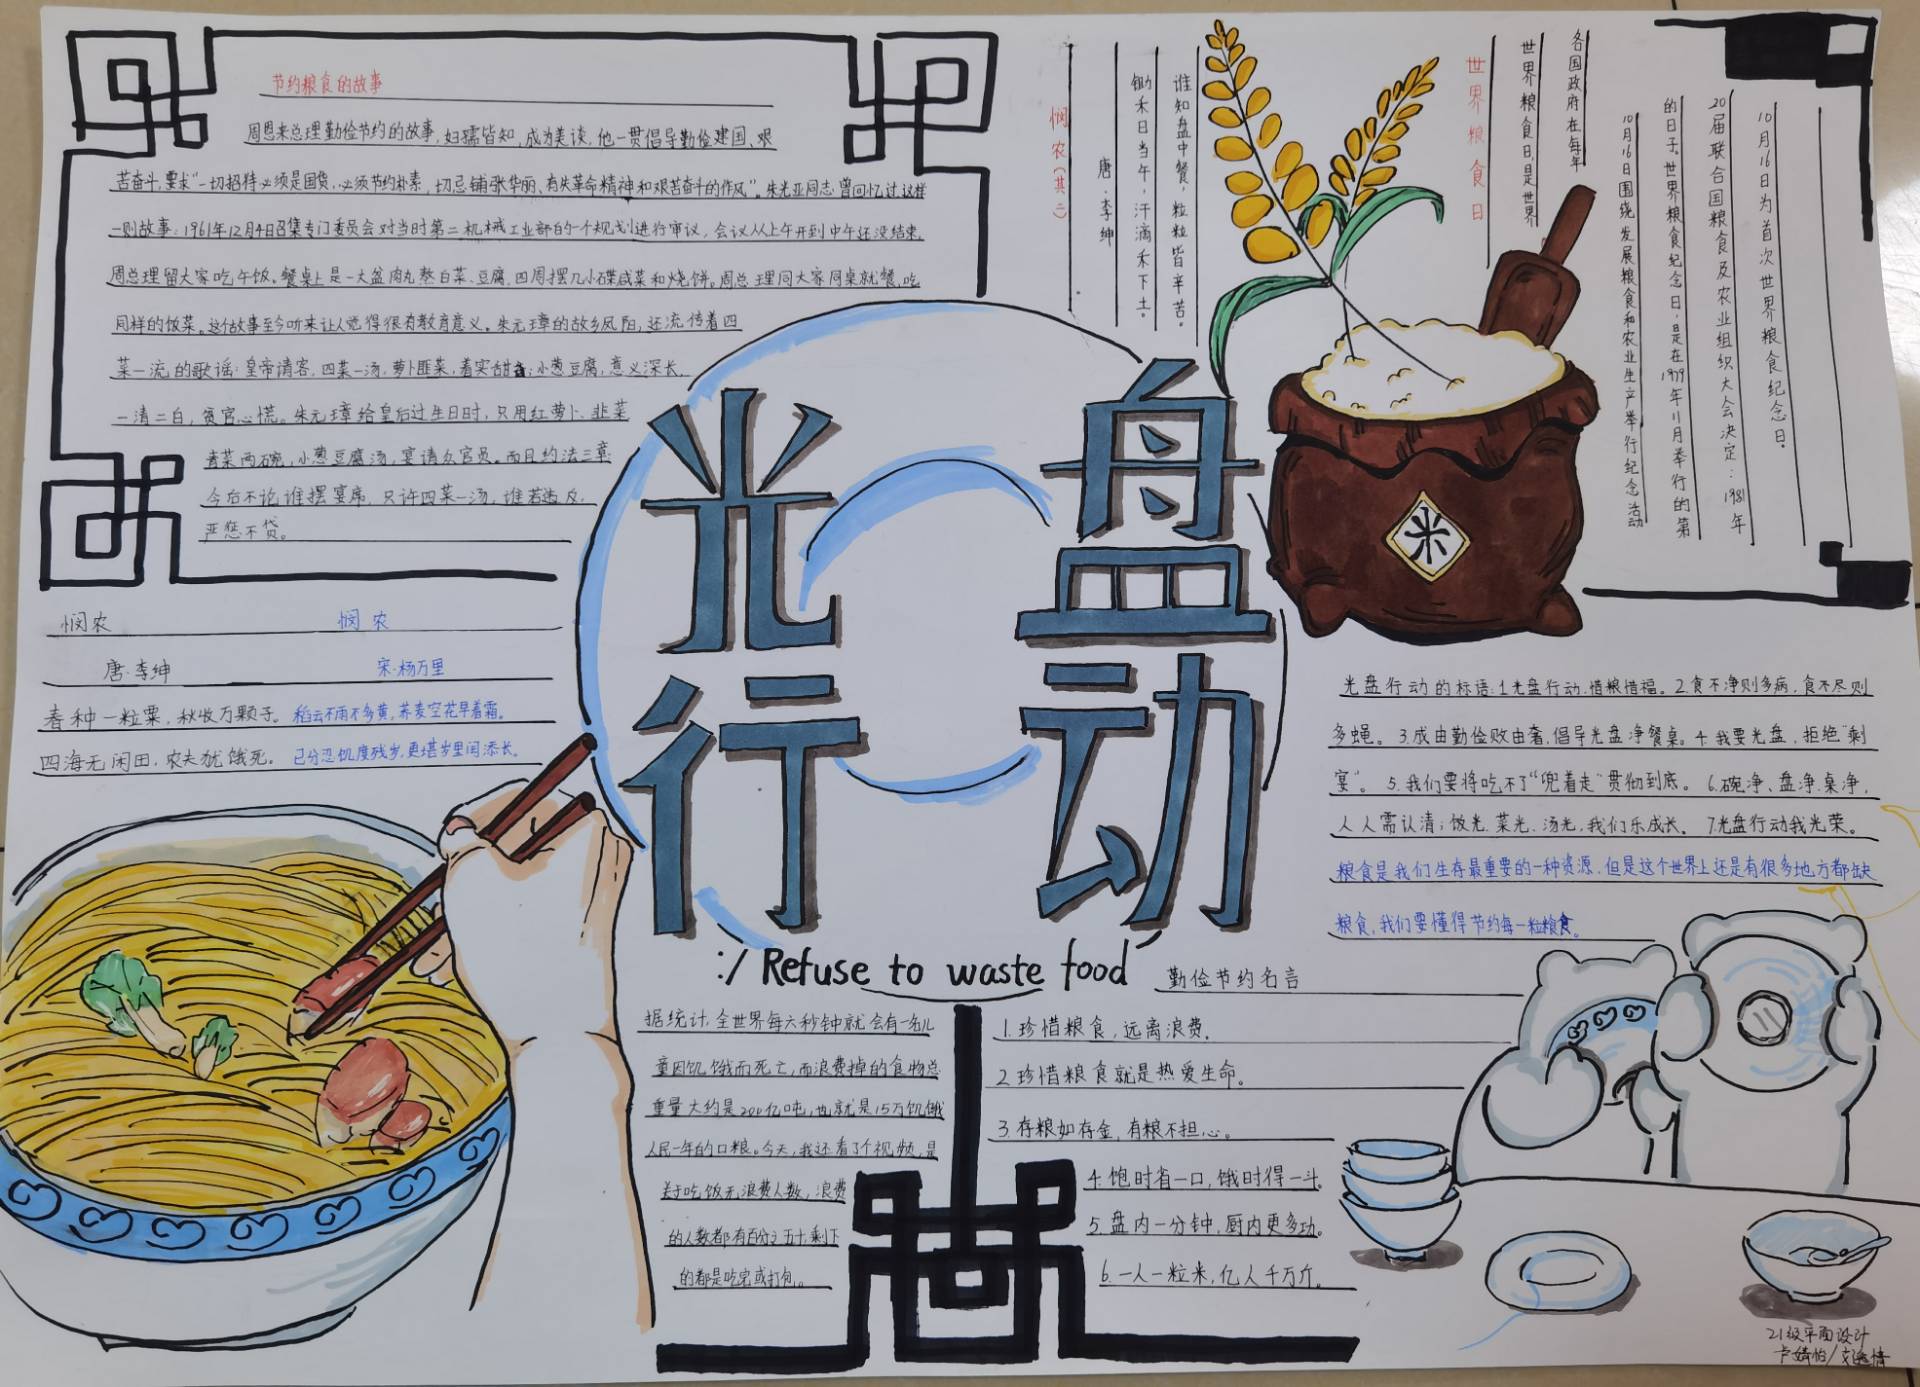 节约粮食的故事
周恩来总理勤俭节约的故事,妇孺皆知,成为美谈,他一贯倡导勤俭建国、艰
苦奋斗,要求“一切招待必须是国货,必须节约朴素,切忌铺张华丽、有失革命精神和艰苦奋斗的作风”。朱光亚同志曾回忆过这样
一则故事:1961年12月4日召集专门委员会对当时第二机械工业部的一个规划进行审议,会议从上午开到中午还没结束,
周总理留大家吃午饭。餐桌上是一大盆肉丸熬白菜、豆腐,四周摆几小碟咸菜和烧饼。周总理同大家同桌就餐,吃
同样的饭菜。这个故事至今听来让人觉得很有教育意义。朱元璋的故乡凤阳,还流传着四
菜一流的歌谣:皇帝请客,四菜一汤,萝卜韭菜,着实甜香;小葱豆腐,意义深长,
一清二白,贪官心慌。朱元璋给皇后过生日时,只用红萝卜、韭菜
青菜两碗,小葱豆腐汤,宴请众官员。而且约法三章:
今后不论谁摆宴席,只许四菜一汤,谁若违反,
严惩不贷。
悯农(其二)
唐·李绅
锄禾日当午,汗滴禾下土。
谁知盘中餐,粒粒皆辛苦。
世界粮食日
世界粮食日,是世界
各国政府在每年
10月16日围绕发展粮食和农业生产举行纪念活动
的日子。世界粮食纪念日,是在1979年11月举行的第
20届联合国粮食及农业组织大会决定:1981年
10月16日为首次世界粮食纪念日。
米
悯农
唐·李绅
春种一粒粟,秋收万颗子。
四海无闲田,农夫犹饿死。
悯农
宋·杨万里
稻云不雨不多黄,荞麦空花早着霜。
已分忍饥度残岁,更堪岁里闰添长。
光盘
行动
:/ Refuse to waste food
光盘行动的标语:1.光盘行动,惜粮惜福。2.食不净则多病,食不尽则
多蝇。3.成由勤俭败由奢,倡导光盘净餐桌。4.我要光盘,拒绝“剩
宴”。5.我们要将吃不了“兜着走”贯彻到底。6.碗净、盘净、桌净,
人人需认清;饭光、菜光、汤光,我们乐成长。7.光盘行动我光荣。
粮食是我们生存最重要的一种资源,但是这个世界上还是有很多地方都缺
粮食,我们要懂得节约每一粒粮食。
据统计,全世界每六秒钟就会有一名儿
童因饥饿而死亡,而浪费掉的食物总
重量大约是200亿吨,也就是15万饥饿
人民一年的口粮。今天,我还看了个视频,是
关于吃饭无浪费人数,浪费
的人数都有百分之五十,剩下
的都是吃完或打包。
勤俭节约名言
1.珍惜粮食,远离浪费。
2.珍惜粮食就是热爱生命。
3.存粮如存金,有粮不担心。
4.饱时省一口,饿时得一斗。
5.盘内一分钟,厨内更多功。
6.一人一粒米,亿人千万斤。
21级平面设计